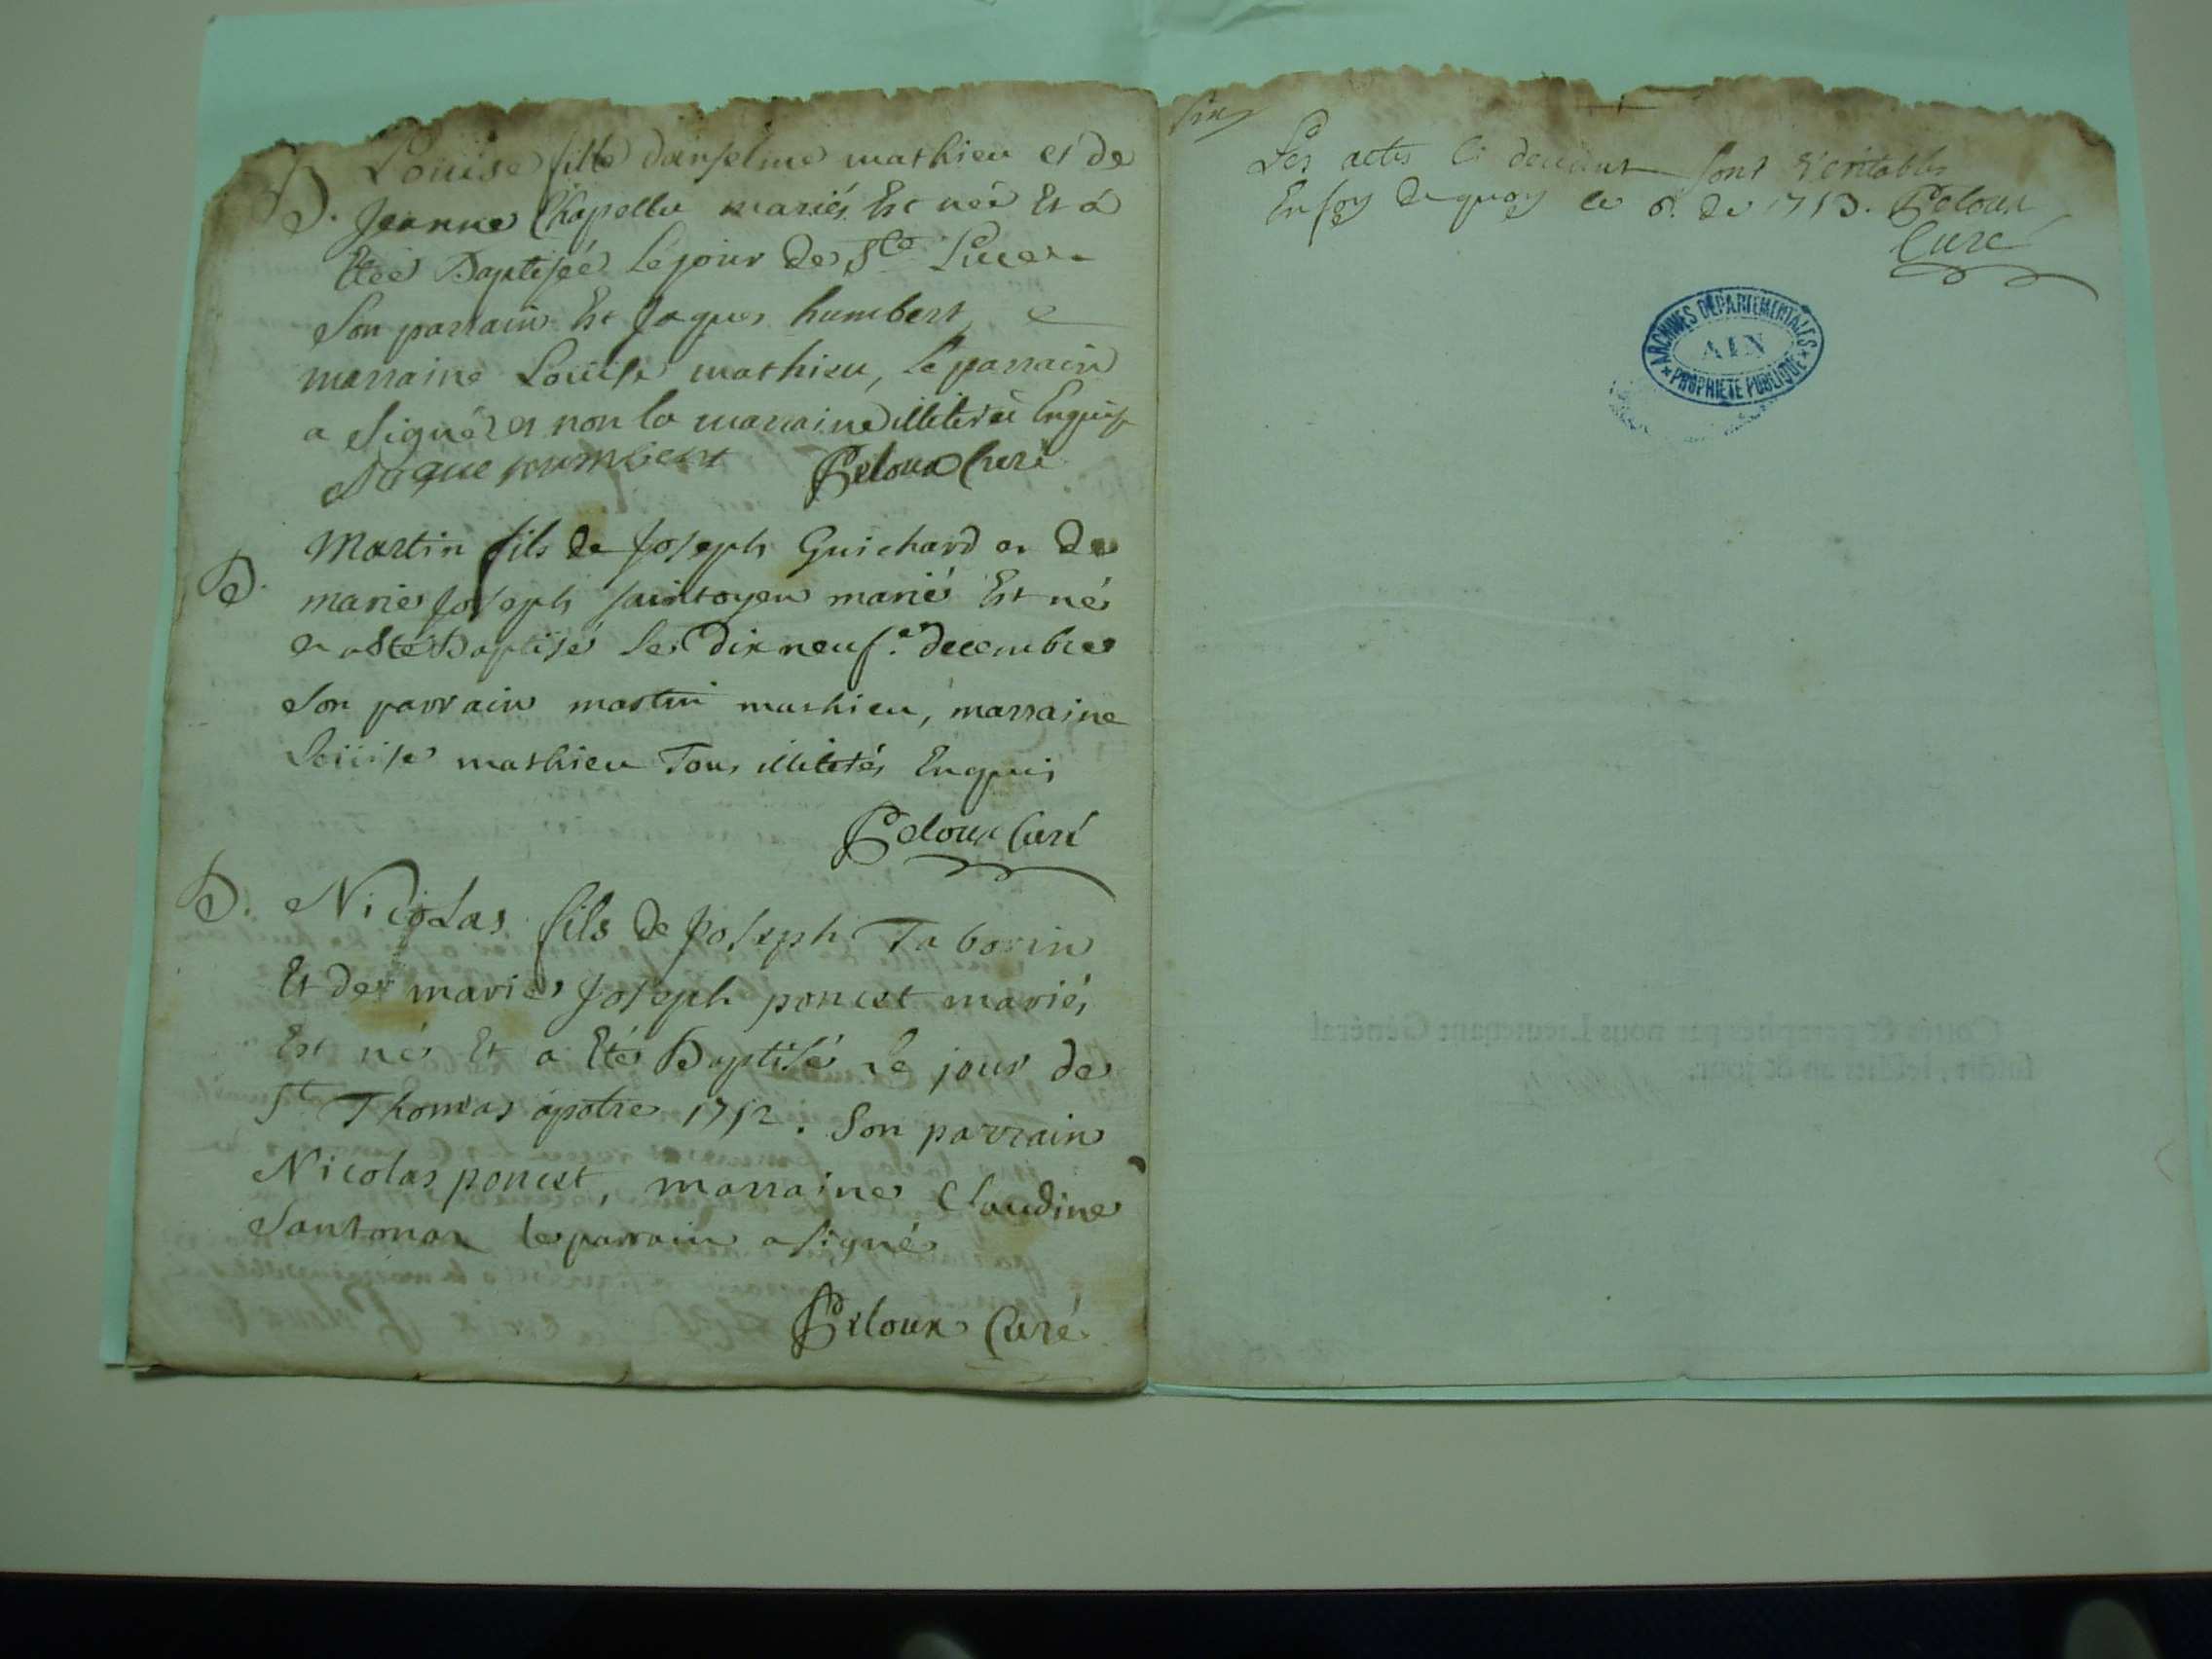 B. Louise fille d'anselme mathieu et de
Jeanne Chapellu mariés Est née Et a
Etée Baptisée le jour de Ste Luce
Son parrain Est Jaques humbert
marraine Loüise mathieu, le parrain
a signé et non la marraine illiterée Enquise
Jaque humbert Peloux Curé
B. Martin fils de Joseph Guichard et de
marie Joseph saintoyen marié Est né
et a été Baptisé le dix neuf.e decembre
Son parrain martin mathieu, marraine
Loüise mathieu Tous illiterés Enquis
Peloux Curé
B. Nicolas fils de Joseph Taborin
Et de marie Joseph poncet mariés
Est né Et a Eté Baptisé le jour de
St Thomas apotre 1752. Son parrain
Nicolas poncet, marraine Claudine
Santonax le parrain a signé
Peloux Curé
Six
Les actes Ci devant sont véritables
En foy de quoy ce 6. de 1753. Peloux
Curé
ARCHINES DÉPARTEMENTALES
AIN
PROPRIÉTÉ PUBLIQUE
Cottés & paraphés par nous Lieutenant Général
susdit, lesdits an & jour.